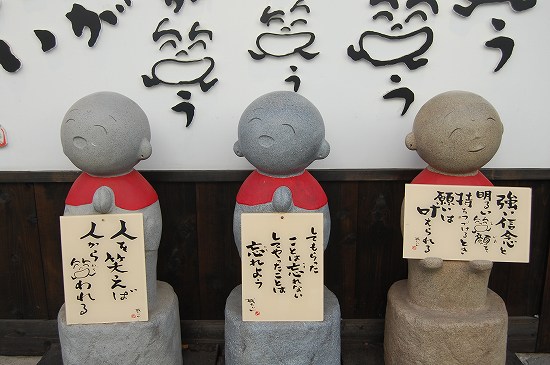 いが
笑う
笑う
笑う
人を笑えば
人から笑われる
してもらった
ことは忘れない
してやったことは
忘れよう
強い信念と
明るい笑顔を
持ちつづけるとき
願いは
叶えられる